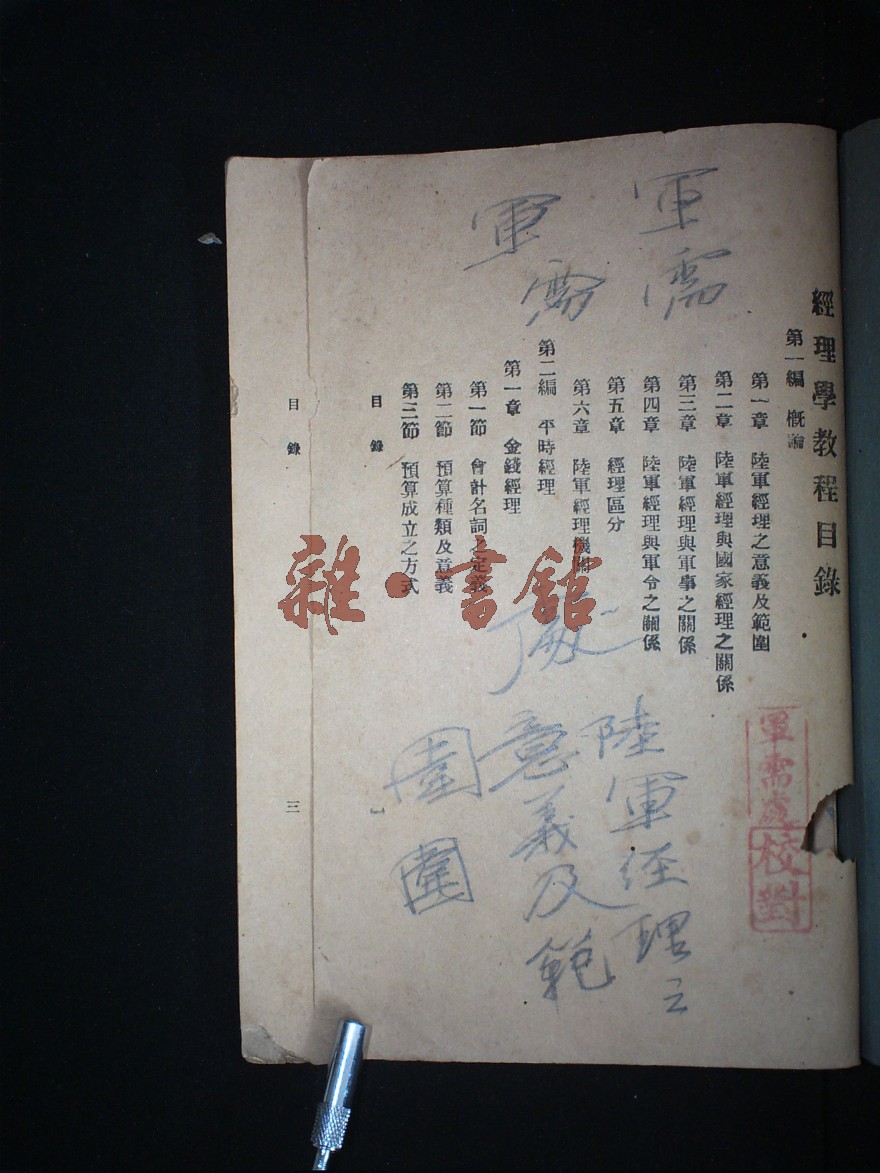 經理學教程目錄
第一編 概論
第一章 陸軍經理之意義及範圍
第二章 陸軍經理與國家經理之關係
第三章 陸軍經理與軍事之關係
第四章 陸軍經理與軍令之關係
第五章 經理區分
第六章 陸軍經理機關
第二編 平時經理
第一章 金錢經理
第一節 會計名詞之定義
第二節 預算種類及意義
第三節 預算成立之方式
目錄
一
目錄
三
軍需
軍需
處
陸軍經理之
意義及範
圍
圍
軍需處
校對
雜·書館